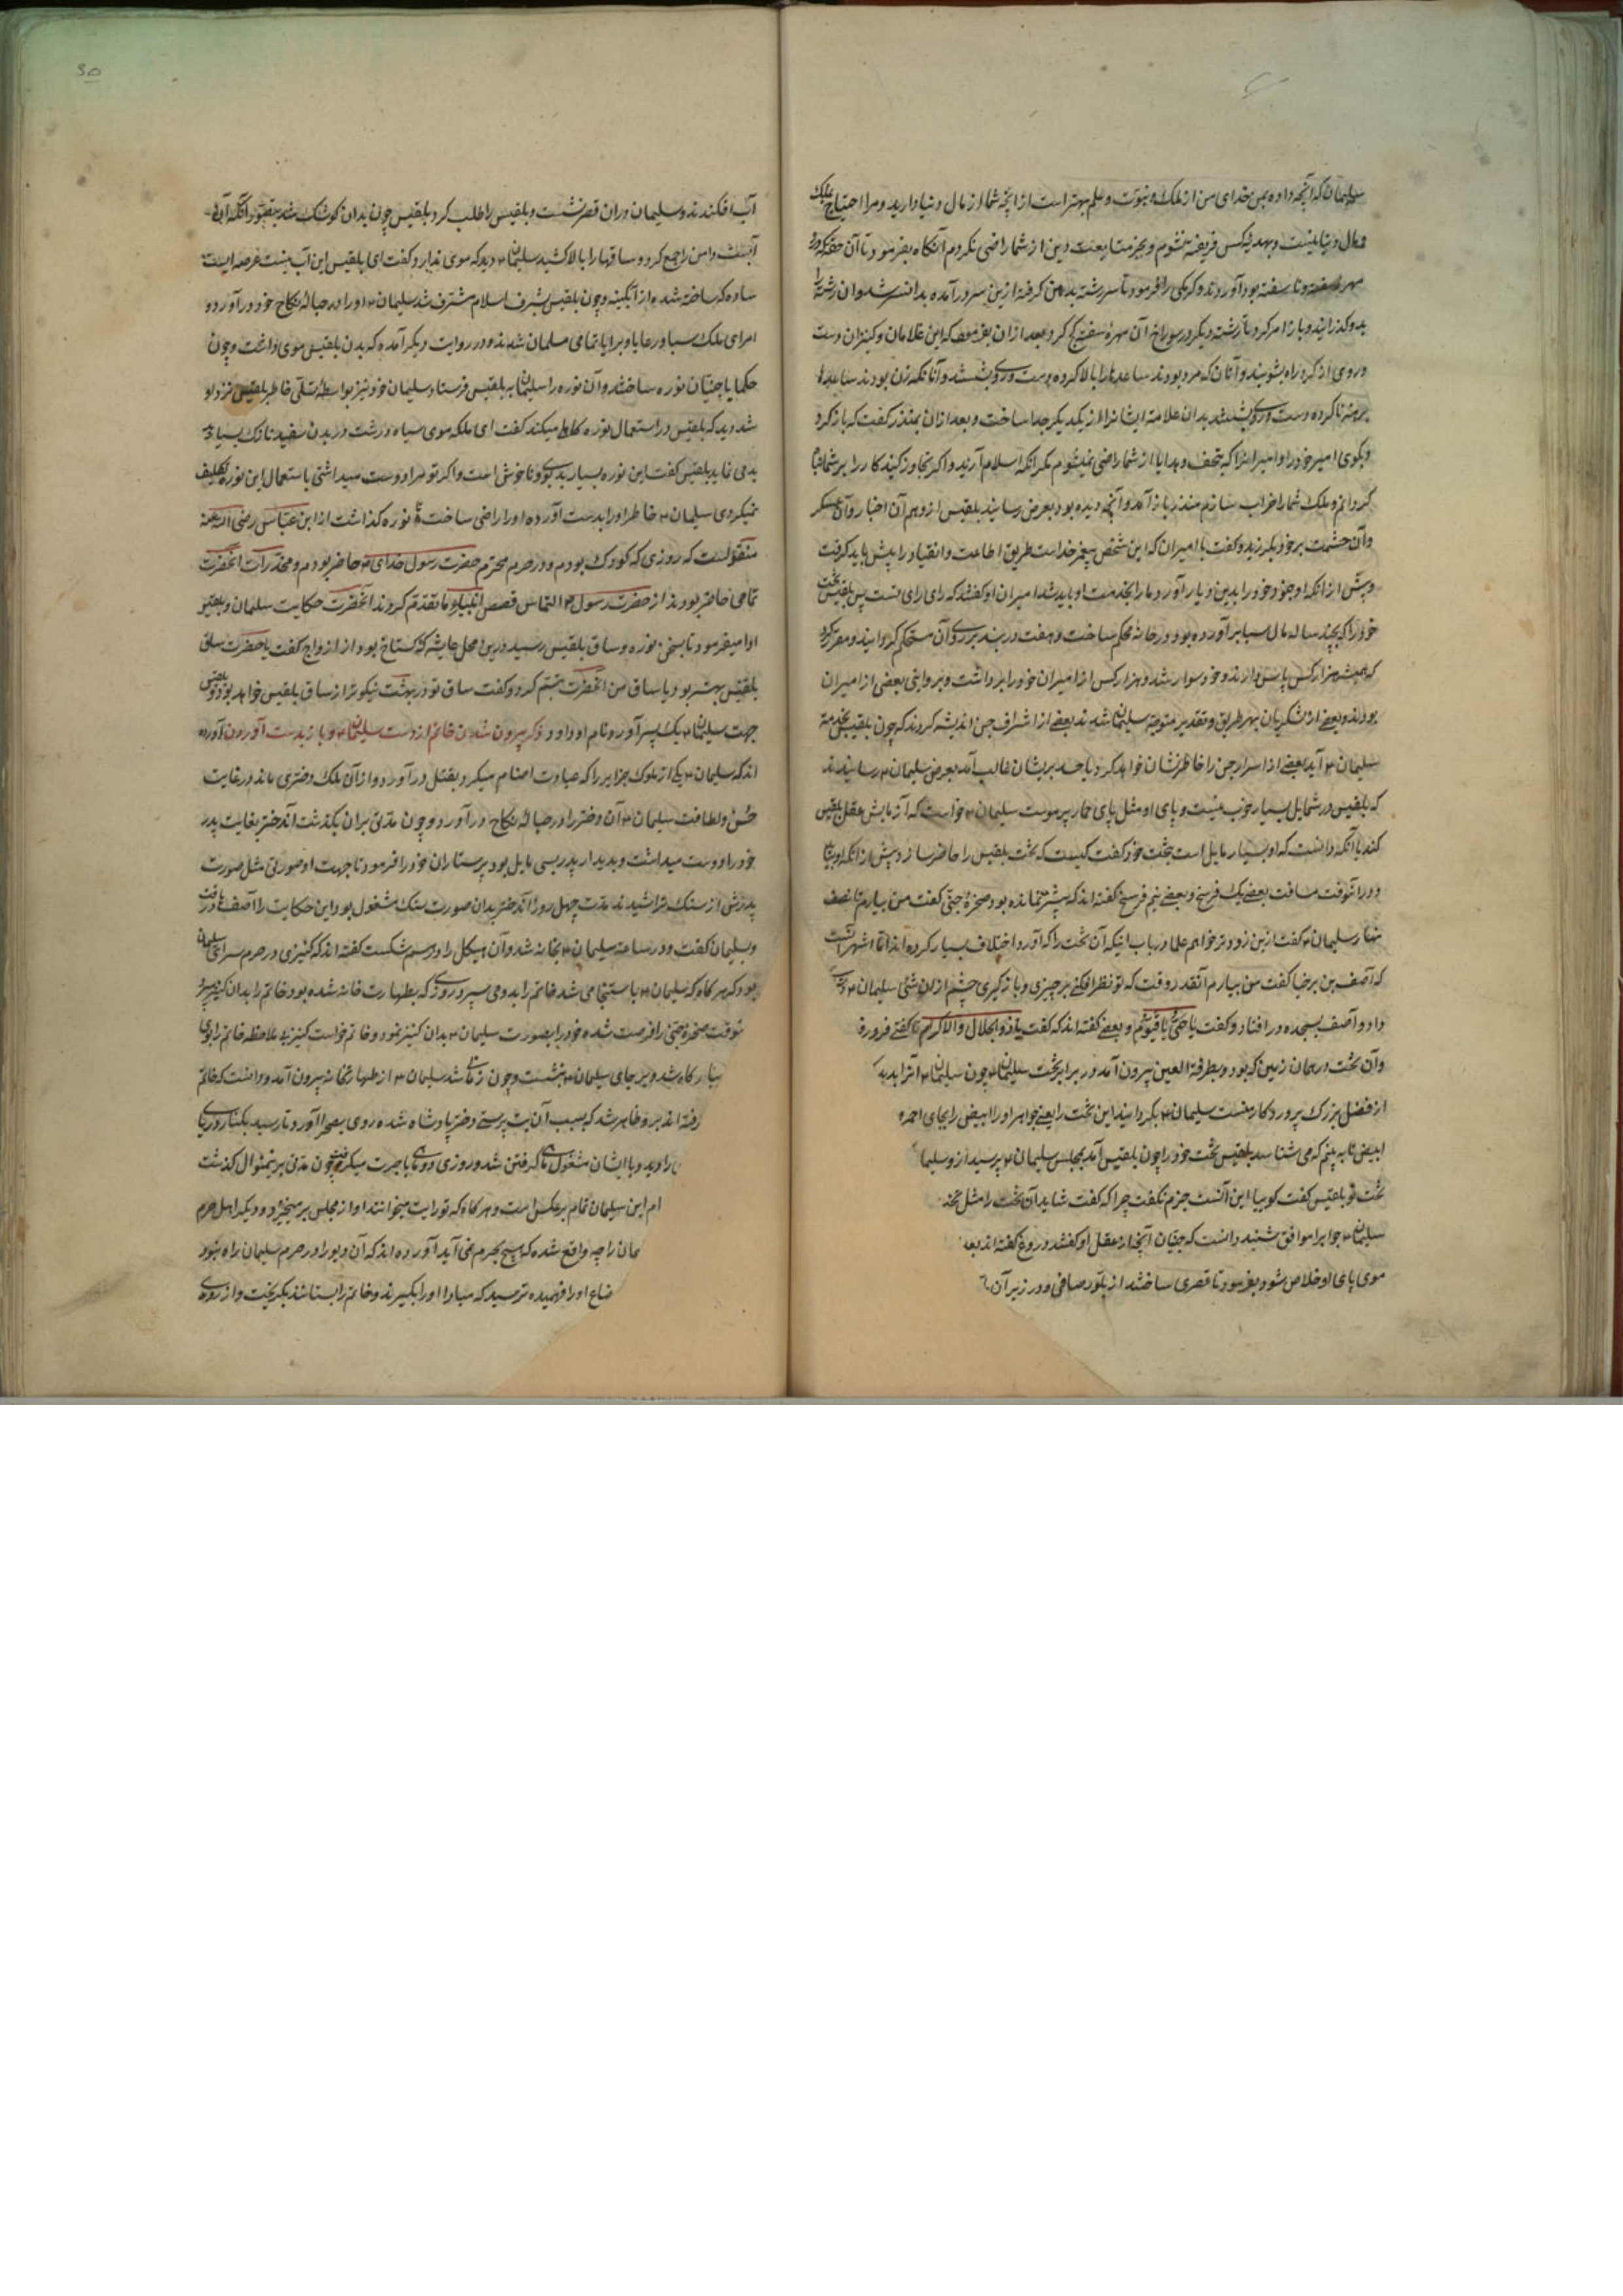 سلیمان که آنچه داده بمن خدای من از ملک و نبوت و علم بهتر است از آنچه شما از مال دنیا دارید و مرا احتیاج بملک
و مال دنیا نیست و بهدیه کس فریفته نشوم و بجز متابعت دین از شما راضی نکردم آنکاه بفرمود تا آن حقه که درو
مهره سفته و ناسفته بود آوردند و کرمکی را فرمود تا سر رشته بدهن کرفته ازین سر درآمده بدان سر شد و ان رشته را
بدو کذرانید و باز امر کرد تا رشته دیکر در سوراخ آن مهره سفته کج کرد بعد از ان بفرمود که این غلامان و کنیزان دست
و روی از کرد راه بشویند و آنان که مرد بودند ساعدها را بالا کرده دست و روی شستند و آنانکه زن بودند ساعدها
برهنه ناکرده دست و روی شستند بدان علامت ایشانرا از یکدیکر جدا ساخت و بعد از ان بمنذر کفت که باز کرد
و بکوی امیر خود را و امیرانرا که بتحف و هدایا از شما راضی نمیشوم مکر آنکه اسلام آرید و اکر تجاوز کنید کار را بر شما تباه
کردانم و ملک شما را خراب سازم منذر باز آمد و آنچه دیده بود بعرض رسانید بلقیس از وهم آن اخبار و آن عسکر
و آن حشمت بر خود بلرزید و کفت با امیران که این شخص پیغمبر خداست طریق اطاعت و انقیاد را پیش باید کرفت
و پیش از آنکه او جنود خود را بدین دیار آورد ما را بخدمت او باید شد امیران او کفتند که رای رای تست پس بلقیس تخت
خود را که بچند ساله مال سبا برآورده بود در خانه محکم ساخت و هفت در بند بر روی آن مستحکم کردانید و مقرر کرد
که همیشه هزار کس پاس دارند و خود سوار شد و هزار کس از امیران خود را برداشت و بروایتی بعضی از امیران
بودند و بعضی از لشکریان بهر طریق و تقدیر متوجه سلیمان شدند بعضی از اشراف جن اندیشه کردند که چون بلقیس بخدمت
سلیمان ع آید بعضی از اسرار جن را خاطر نشان خواهد کرد با حسد بریشان غالب آمد بعرض سلیمان ع رسانیدند
که بلقیس در شمایل بسیار خوب نیست و پای او مثل پای حمار پر موست سلیمان ع خواست که آزمایش عقل بلقیس
کند با آنکه دانست که او بسیار مایل است بتخت خود کفت کیست که تخت بلقیس را حاضر سازد پیش از آنکه او بیاید
و در آنوقت مسافت بعضی یک فرسخ و بعضی نیم فرسخ کفته اند که بیشتر نمانده بود صخره جنی کفت من بیارم تا نصف
نهار سلیمان ع کفت ازین زودتر خواهم علما در باب اینکه آن تخت را که آورد اختلاف بسیار کرده اند اما اشهر آنست
که آصف بن برخیا کفت من بیارم آنقدر وقت که تو نظر افکنی بر چیزی و باز کیری چشم از ان شئی سلیمان ع
داد و آصف بسجده در افتاد و کفت یا حی یا قیوم و بعضی کفته اند که کفت یا ذو الجلال والاکرام تا کفتی فرو رفت
و آن تخت در همان زمین که بود و بطرفة العین بیرون آمد در برابر تخت سلیمان ع چون سلیمان ع آنرا بدید
از فضل بزرک پروردکار منست سلیمان ع بکردانید این تخت را یعنی جواهر او را ابیض را بجای احمر
ابیض تا به بینم که می شناسد بلقیس تخت خود را چون بلقیس آمد بمجلس سلیمان ع پرسید از و سلیما
تخت تو بلقیس کفت کوییا این آنست جزم نکفت چرا که کفت شاید آن تخت را مثل تخت
سلیمان ع جواب را موافق شنید دانست که جنیان آنچه از عقل او کفتند دروغ کفته اند بعد
موی پای او خلاص شود بفرمود تا قصری ساختند از بلور صافی و در زیر آن
آب افکندند و سلیمان در ان قصر نشست و بلقیس را طلب کرد بلقیس چون بدان کوشک شد بتصور آنکه آن
آبست دامن را جمع کرد و ساقها را بالا کشید سلیمان ع دید که موی ندارد کفت ای بلقیس این آب نیست عرصه ایست
ساده که ساخته شده از آبکینه و چون بلقیس بشرف اسلام مشرف شد سلیمان ع او را در حباله نکاح خود درآورد و
امرای ملک سبا و رعایا و برایا تمامی مسلمان شدند و در روایت دیکر آمده که بدن بلقیس موی داشت و چون
حکما یا جنیان نوره ساختند و آن نوره را سلیمان به بلقیس فرستاد سلیمان خود نیز بواسطه تسلی خاطر بلقیس نزد او
شد دید که بلقیس در استعمال نوره کاهلی میکند کفت ای ملکه موی سیاه درشت در بدن سفید نازک بسیار
بد می نماید بلقیس کفت این نوره بسیار بدبوی و ناخوش است و اکر تو مرا دوست میداشتی باستعمال این نوره تکلیف
نمیکردی سلیمان ع خاطر او را بدست آورده او را راضی ساخت تا نوره کذاشت از ابن عباس رضی الله عنه
منقولست که روزی که کودک بودم و در حرم محترم حضرت رسول خدای حاضر بودم و مخدرات آنحضرت
تمامی حاضر بودند از حضرت رسول التماس قصص انبیاء ما تقدم کردند آنحضرت حکایت سلیمان و بلقیس
ادا میفرمود تا بسخن نوره و ساق بلقیس رسید درین محل عایشه که کستاخ بود از ازواج کفت یا حضرت ساق
بلقیس بهتر بود یا ساق من آنحضرت تبسم کرد و کفت ساق تو در بهشت نیکوتر از ساق بلقیس خواهد بود و بلقیس
جهت سلیمان ع یک پسر آورد و نام او داود ذکر بیرون شدن خاتم از دست سلیمان ع و باز بدست آوردن آورده
اند که سلیمان ع یکی از ملوک جزایر را که عبادت اصنام میکرد بقتل درآورد و از ان ملک دختری ماند در غایت
حسن و لطافت سلیمان ع آن دختر را در حباله نکاح درآورد و چون مدتی بران بکذشت آندختر بغایت پدر
خود را دوست میداشت و بدیدار پدر بسی مایل بود پرستاران خود را فرمود تا جهت او صورتی مثل صورت
پدرش از سنک تراشیدند مدت چهل روز آندختر بدان صورت سنک مشغول بود این حکایت را آصف دریافت
و بسلیمان کفت و در ساعت سلیمان ع بخانه شد و آن هیکل را در هم شکست کفته اند که کنیزی در حرم سرای سلیمان
بود که هر کاه که سلیمان ع باستنجا می شد خاتم را بدو می سپرد روزی که بطهارت خانه شده بود خاتم را بدان کنیز سپرد
نوقت صخره جنی را فرصت شده خود را بصورت سلیمان ع بدان کنیز نمود و خاتم خواست کنیز بی ملاحظه خاتم را بوی
ببارکاه شد و بر جای سلیمان ع بنشست و چون زمانی شد سلیمان ع از طهارتخانه بیرون آمد و دانست که خاتم
رفته اند برو ظاهر شد که بسبب آن بت پرستی دختر پادشاه شده روی بصحرا آورد تا رسید بکنار دریای
را دید و با ایشان مشغول ماهی کرفتن شد و روزی دو ماهی باجرت میکرفت چون مدتی برینمنوال کذشت
ام این سلیمان تمام بر عکس است و هر کاه که تورایت میخوانند او از مجلس بر میخیزد و دیکر اهل حرم
مان را چه واقع شده که هیچ بحرم نمی آید آورده اند که آن دیو را در حرم سلیمان راه نبود
ضاع او را فهمیده ترسید که مبادا او را بکیرند و خاتم را بستانند بکریخت و از روی